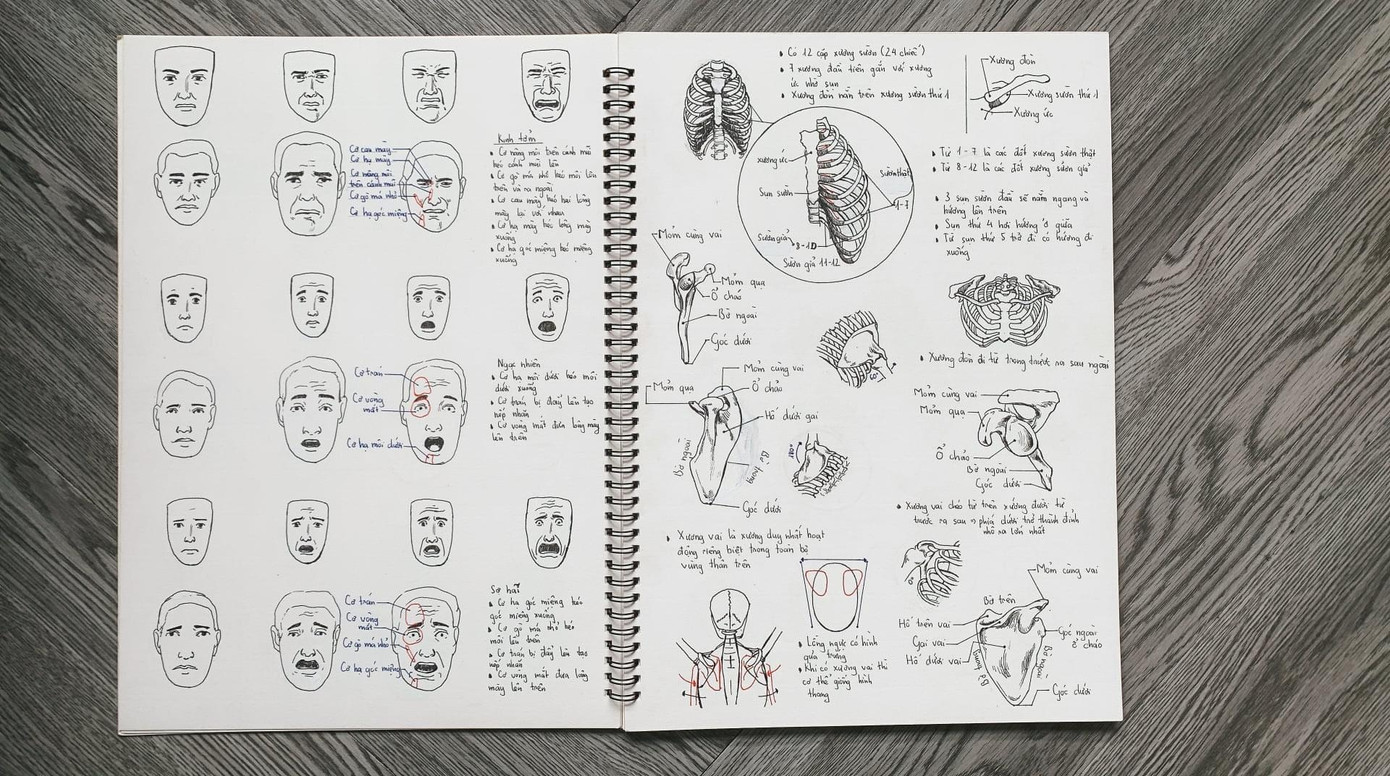 Kinh tởm
Cơ cau mày
Cơ hạ mày
Cơ nâng môi
trên cánh mũi
Cơ gò má nhỏ
Cơ hạ góc miệng
• Cơ nâng môi trên cánh mũi
kéo cánh mũi lên
• Cơ gò má nhỏ kéo môi lên
trên và ra ngoài
• Cơ cau mày kéo hai lông
mày lại với nhau
• Cơ hạ mày kéo lông mày
xuống
• Cơ hạ góc miệng kéo miệng
xuống
Ngạc nhiên
Cơ trán
Cơ vòng
mắt
Cơ hạ môi dưới
• Cơ hạ môi dưới kéo môi
dưới xuống
• Cơ trán bị đẩy lên tạo
nếp nhăn
• Cơ vòng mắt đưa lông mày
lên trên
Sợ hãi
Cơ trán
Cơ vòng
mắt
Cơ gò má nhỏ
Cơ hạ góc miệng
• Cơ hạ góc miệng kéo
góc miệng xuống
• Cơ gò má nhỏ kéo
môi lên trên
• Cơ trán bị đẩy lên tạo
nếp nhăn
• Cơ vòng mắt đưa lông
mày lên trên
• Có 12 cặp xương sườn (24 chiếc)
• 7 xương đầu tiên gắn với xương
ức nhờ sụn
• Xương đòn nằm trên xương sườn thứ 1
Xương đòn
Xương sườn thứ 1
Xương ức
xương ức
Sụn sườn
Sườn thật
1-7
Sườn giả
8-10
Sườn giả 11-12
• Từ 1-7 là các đốt xương sườn thật
• Từ 8-12 là các đốt xương sườn giả
• 3 sụn sườn đầu sẽ nằm ngang và
hướng lên trên
• Sụn thứ 4 hơi hướng ở giữa
• Từ sụn thứ 5 trở đi có hướng đi
xuống
Mỏm cùng vai
Mỏm quạ
Ổ chảo
Bờ ngoài
Góc dưới
• Xương đòn đi từ trong trước ra sau ngoài
Mỏm cùng vai
Mỏm quạ
Ổ chảo
Hố dưới gai
Bờ ngoài
Bờ trong
Góc dưới
Mỏm cùng vai
Mỏm quạ
Ổ chảo
Bờ ngoài
Góc dưới
• Xương vai chéo từ trên xuống dưới từ
trước ra sau → phía dưới trở thành đỉnh
nhô ra lớn nhất
• Xương vai là xương duy nhất hoạt
động riêng biệt trong toàn bộ
vùng thân trên
• Lồng ngực có hình
quả trứng
• Khi có xương vai thì
cơ thể giống hình
thang
Mỏm cùng vai
Bờ trên
Hố trên vai
Gai vai
Hố dưới vai
Góc ngoài
ổ chảo
Bờ trong
Bờ ngoài
Góc dưới